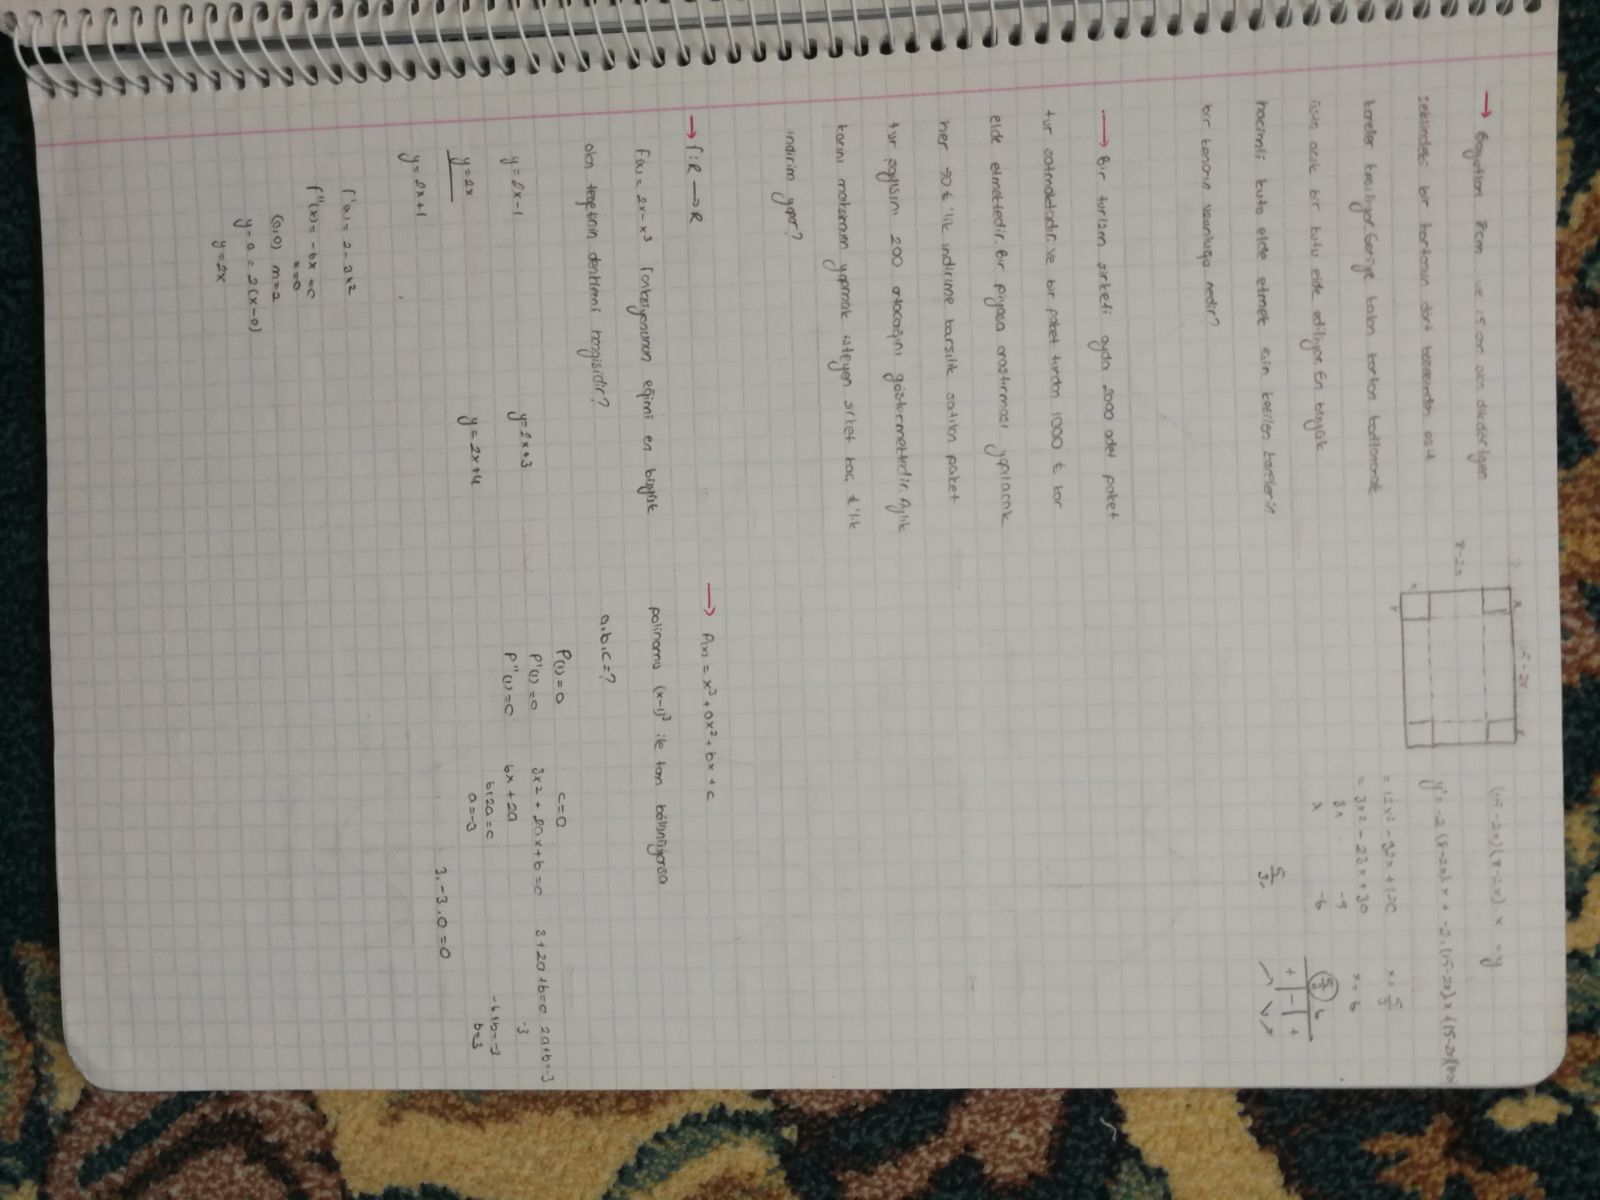 → Boyutları 8cm ve 15 cm olan dikdörtgen
şeklindeki bir kartonun dört köşesinden eşit
kareler kesiliyor. Geriye kalan karton katlanarak
üstü açık bir kutu elde ediliyor. En büyük
hacimli kutu elde etmek için kesilen karelerin
bir kenarın uzunluğu nedir?
x 15-2x x
8-2x
x
x
(15-2x)(8-2x).x = y
y' = -2(8-2x).x + -2.(15-2x).x + (15-2x)(8-2x)
= 12x² - 92x + 120
= 3x² - 23x + 30
3x -5
x -6
x = 5/3
x = 6
5/3 6
+ - +
5/3
→ Bir turizm şirketi ayda 2000 adet paket
tur satmaktadır. ve bir paket turdan 1000 ₺ kar
elde etmektedir. Bir piyasa araştırması yapılacak
her 50 ₺'lik indirime karşılık satılan paket
tur sayısını 200 artacağını göstermektedir. Aylık
karını maksimum yapmak isteyen şirket kaç ₺'lik
indirim yapar?
→ f: R → R
f(x) = 2x - x³ fonksiyonunun eğimi en büyük
olan teğetinin denklemi hangisidir?
y = 2x-1 y = 2x+3
y = 2x y = 2x+4
y = 2x+1
f'(x) = 2 - 3x²
f''(x) = -6x = 0
x=0
(0,0) m=2
y-0 = 2(x-0)
y = 2x
→ P(x) = x³ + ax² + bx + c
polinomu (x-1)³ ile tam bölünüyorsa
a.b.c = ?
P(1) = 0 c=0
P'(1) = 0 3x² + 2ax + b = 0 3+2a+b=0 2a+b=-3
P''(1) = 0 6x + 2a -3
6+2a=0 -6+b=-3
a=-3 b=3
3.-3.0 = 0